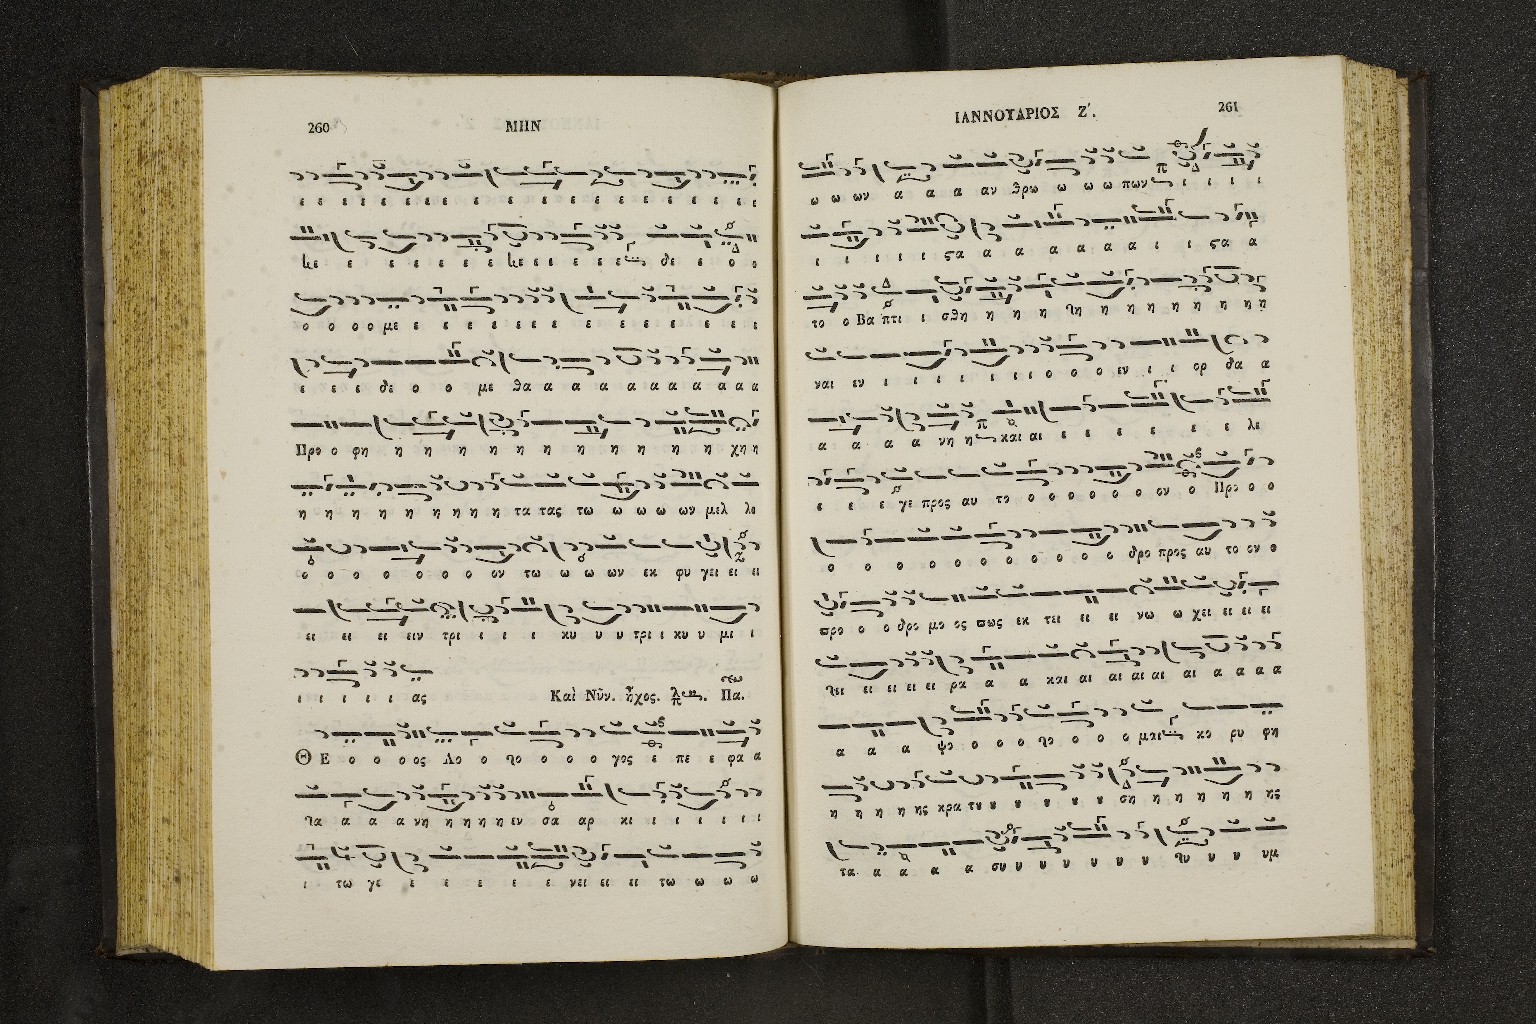 260 ΜΗΝ
ε ε ε ε ε ε ε ε ε ε ε ε ε ε ε ε ε ε ε
κε ε ε ε ε ε ε κε ε ε ε ε ε δε ε ο ο
ο ο ο ο με ε ε ε ε ε ε ε ε ε ε ε ε ε ε
ε ε ε δε ο ο με θα α α α α α α α α α α
Προ ο φη η η η η η η η η η η χη η
η η η η η η η η η τα τας τω ω ω ω ων μελ λο
ο ο ο ο ο ο ο ο ον τω ω ω ων εκ φυ γει ει ει
ει ει ει ειν τρι ι ι ι κυ υ υ τρι ι κυ υ μι ι
ι ι ι ι ι ας Καὶ Νῦν. ἦχος. Πα.
Θ Ε ο ο ο ος Λο ο λο ο ο ο γος ε πε ε φα α
λα α α α νη η η η η εν σα αρ κι ι ι ι ι ι ι
ι τω γε ε ε ε ε ε νει ει ει τω ω ω ω
ΙΑΝΝΟΥΑΡΙΟΣ Ζ΄. 261
ω ω ων α α α αν θρω ω ω ω πων ι ι ι ι
ι ι ι ι ι ςα α α α α α α ι ι ςα α
το ο Βα πτι ι σθη η η η λη η η η η η η η η
ναι εν ι ι ι ι ι ι ι ο ο ο εν ι ι ορ δα α
α α α α νη η και αι ε ε ε ε ε ε λε
ε ε ε γε προς αυ το ο ο ο ο ο ο ο ον ο Προ ο ο
ο ο ο ο ο ο ο ο ο ο δρο προς αυ το ον ο
προ ο ο δρο μο ος πως εκ τει ει ει νω ω χει ει ει ει
λει ει ει ει ει ρα α α και αι αι αι αι αι α α α α
α α α ψο ο ο ο λο ο ο ο μαι κο ρυ φη
η η η η ης κρα τυ υ υ υ υ υ ση η η η η η ης
τα α α α α συ υ υ υ υ υ υ λυ υ υ υ υμ